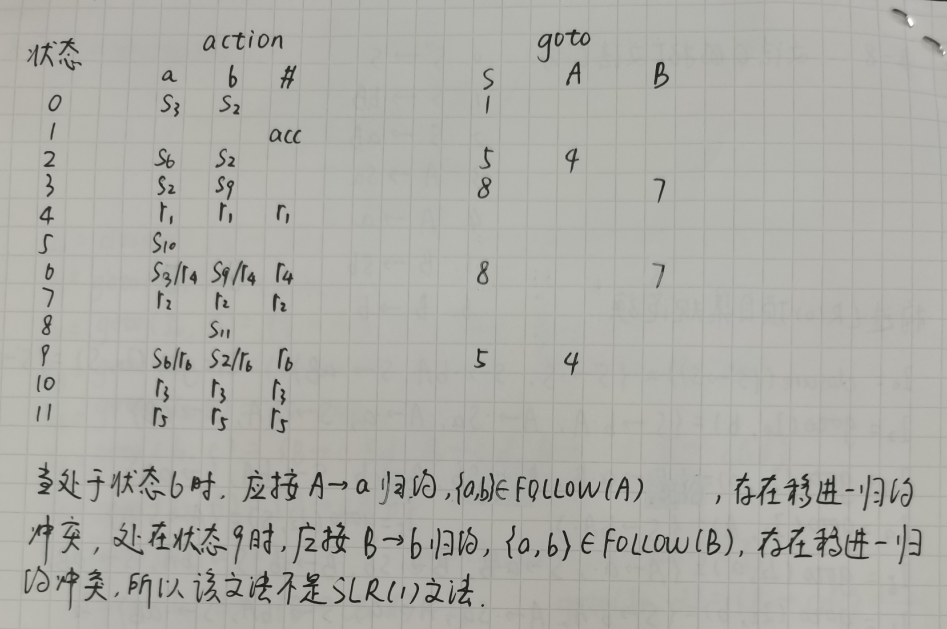 状态 action goto
a b # S A B
0 S3 S2 1
1 acc
2 S6 S2 5 4
3 S2 S9 8 7
4 r1 r1 r1
5 S10
6 S3/r4 S9/r4 r4 8 7
7 r2 r2 r2
8 S11
9 S6/r6 S2/r6 r6 5 4
10 r3 r3 r3
11 r5 r5 r5
当处于状态6时. 应按A→a归约,{a,b}∈FOLLOW(A) ,存在移进-归约
冲突, 处在状态9时,应按B→b归约, {a,b}∈FOLLOW(B), 存在移进-归
约冲突,所以该文法不是SLR(1)文法.